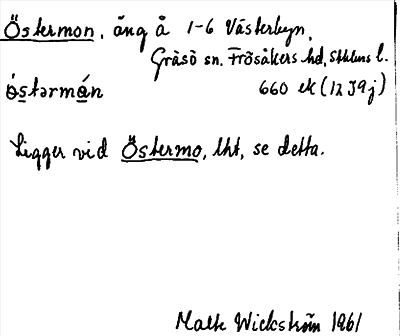 Östermon, äng å 1-6 Västerbyn,
Gräsö sn. Frösåkers hd, Sthlms l.
östərmán 660 ek (12 I 9 j)
Ligger vid Östermo, lht, se detta.
Malte Wickström 1961